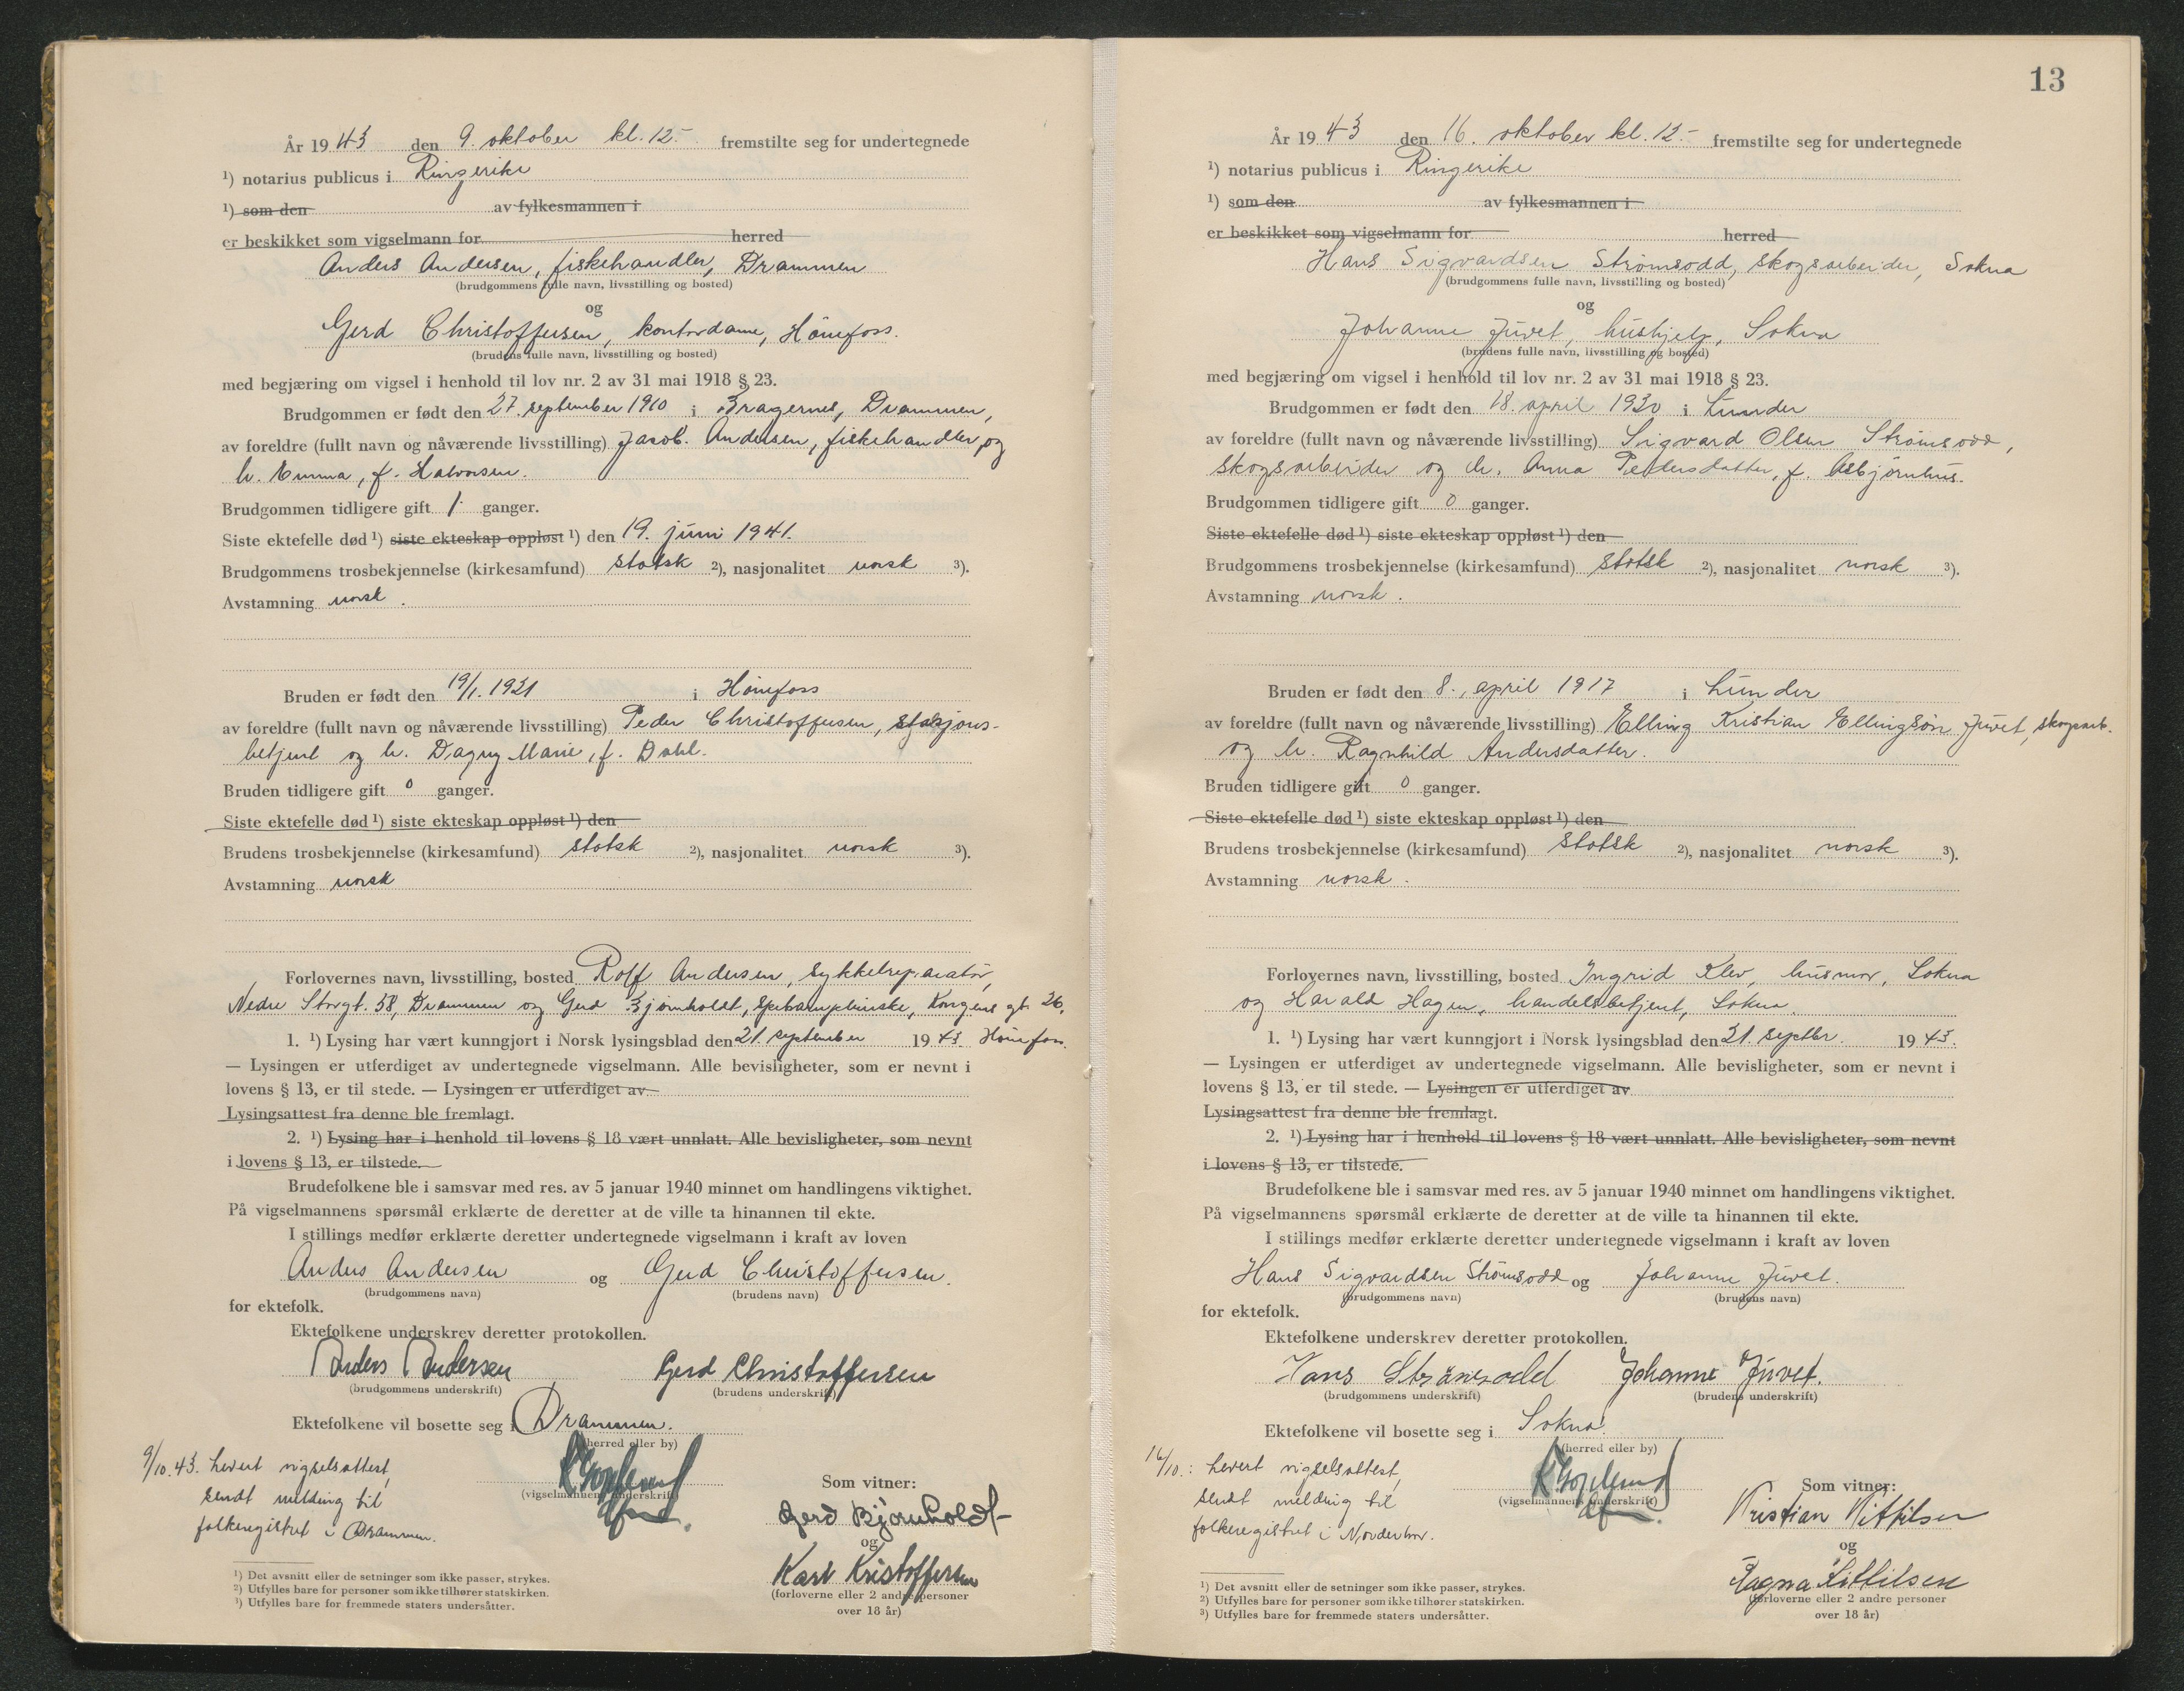 År 1943 den 9. oktober kl. 12.- fremstilte seg for undertegnede
¹) notarius publicus i Ringerike
¹) som den av fylkesmannen i
er beskikket som vigselmann for herred
Anders Andersen, fiskehandler, Drammen
(brudgommens fulle navn, livsstilling og bosted)
og
Gerd Christoffersen, kontordame, Hönefoss.
(brudens fulle navn, livsstilling og bosted)
med begjæring om vigsel i henhold til lov nr. 2 av 31 mai 1918 § 23.
Brudgommen er født den 27. september 1910 i Bragernes, Drammen,
av foreldre (fullt navn og nåværende livsstilling) Jacob Andersen, fiskehandler og
h. Emma, f. Halvorsen.
Brudgommen tidligere gift 1 ganger.
Siste ektefelle død ¹) siste ekteskap oppløst ¹) den 19. juni 1941.
Brudgommens trosbekjennelse (kirkesamfund) statsk ²), nasjonalitet norsk ³).
Avstamning norsk.
Bruden er født den 19/1. 1921 i Hönefoss
av foreldre (fullt navn og nåværende livsstilling) Peder Christoffersen, stasjons-
betjent og h. Dagny Marie, f. Dahl.
Bruden tidligere gift 0 ganger.
Siste ektefelle død ¹) siste ekteskap oppløst ¹) den
Brudens trosbekjennelse (kirkesamfund) statsk ²), nasjonalitet norsk ³).
Avstamning norsk
Forlovernes navn, livsstilling, bosted Rolf Andersen, sykkelreparatör,
Nedre Storgt. 58, Drammen og Gerd Björnholdt, Kongens gt. 26,
1. ¹) Lysing har vært kunngjort i Norsk lysingsblad den 21. september 1943 Hönefoss.
— Lysingen er utferdiget av undertegnede vigselmann. Alle bevisligheter, som er nevnt i
lovens § 13, er til stede. — Lysingen er utferdiget av
Lysingsattest fra denne ble fremlagt.
2. ¹) Lysing har i henhold til lovens § 18 vært unnlatt. Alle bevisligheter, som nevnt
i lovens § 13, er tilstede.
Brudefolkene ble i samsvar med res. av 5 januar 1940 minnet om handlingens viktighet.
På vigselmannens spørsmål erklærte de deretter at de ville ta hinannen til ekte.
I stillings medfør erklærte deretter undertegnede vigselmann i kraft av loven
Anders Andersen og Gerd Christoffersen.
(brudgommens navn) (brudens navn)
for ektefolk.
Ektefolkene underskrev deretter protokollen.
Anders Andersen Gerd Christoffersen
(brudgommens underskrift) (brudens underskrift)
Ektefolkene vil bosette seg i Drammen.
(herred eller by)
9/10.43. levert vigselsattest,
sendt melding til
folkeregistret i Drammen.
(vigselmannens underskrift)
Som vitner:
Gerd Björnholdt
og
Karl Kristoffersen
(forloverne eller 2 andre personer
over 18 år)
¹) Det avsnitt eller de setninger som ikke passer, strykes.
²) Utfylles bare for personer som ikke tilhører statskirken.
³) Utfylles bare for fremmede staters undersåtter.
13
År 1943 den 16. oktober kl. 12.- fremstilte seg for undertegnede
¹) notarius publicus i Ringerike
¹) som den av fylkesmannen i
er beskikket som vigselmann for herred
Hans Sigvardsen Strömsodd, skogsarbeider, Sokna
(brudgommens fulle navn, livsstilling og bosted)
og
Johanne Juvet, hushjelp, Sokna
(brudens fulle navn, livsstilling og bosted)
med begjæring om vigsel i henhold til lov nr. 2 av 31 mai 1918 § 23.
Brudgommen er født den 18. april 1920 i Lunder
av foreldre (fullt navn og nåværende livsstilling) Sigvard Olsen Strömsodd,
skogsarbeider og h. Anna Pedersdatter, f. Asbjörnhus.
Brudgommen tidligere gift 0 ganger.
Siste ektefelle død ¹) siste ekteskap oppløst ¹) den
Brudgommens trosbekjennelse (kirkesamfund) statsk ²), nasjonalitet norsk ³).
Avstamning norsk.
Bruden er født den 8. april 1917 i Lunder
av foreldre (fullt navn og nåværende livsstilling) Elling Kristian Ellingsön Juvet, skogsarb.
og h. Ragnhild Andersdatter.
Bruden tidligere gift 0 ganger.
Siste ektefelle død ¹) siste ekteskap oppløst ¹) den
Brudens trosbekjennelse (kirkesamfund) statsk ²), nasjonalitet norsk ³).
Avstamning norsk.
Forlovernes navn, livsstilling, bosted Ingrid Klev, husmor, Sokna
og Harald Hagen, handelsbetjent, Sokna.
1. ¹) Lysing har vært kunngjort i Norsk lysingsblad den 21. septbr. 1943.
— Lysingen er utferdiget av undertegnede vigselmann. Alle bevisligheter, som er nevnt i
lovens § 13, er til stede. — Lysingen er utferdiget av
Lysingsattest fra denne ble fremlagt.
2. ¹) Lysing har i henhold til lovens § 18 vært unnlatt. Alle bevisligheter, som nevnt
i lovens § 13, er tilstede.
Brudefolkene ble i samsvar med res. av 5 januar 1940 minnet om handlingens viktighet.
På vigselmannens spørsmål erklærte de deretter at de ville ta hinannen til ekte.
I stillings medfør erklærte deretter undertegnede vigselmann i kraft av loven
Hans Sigvardsen Strömsodd og Johanne Juvet.
(brudgommens navn) (brudens navn)
for ektefolk.
Ektefolkene underskrev deretter protokollen.
Hans Strömsodd Johanne Juvet.
(brudgommens underskrift) (brudens underskrift)
Ektefolkene vil bosette seg i Sokna.
(herred eller by)
16/10.: levert vigselsattest,
sendt melding til
folkeregistret i Norderhov.
(vigselmannens underskrift)
Som vitner:
Kristian Kittilsen
og
Ragna Kittilsen
(forloverne eller 2 andre personer
over 18 år)
¹) Det avsnitt eller de setninger som ikke passer, strykes.
²) Utfylles bare for personer som ikke tilhører statskirken.
³) Utfylles bare for fremmede staters undersåtter.